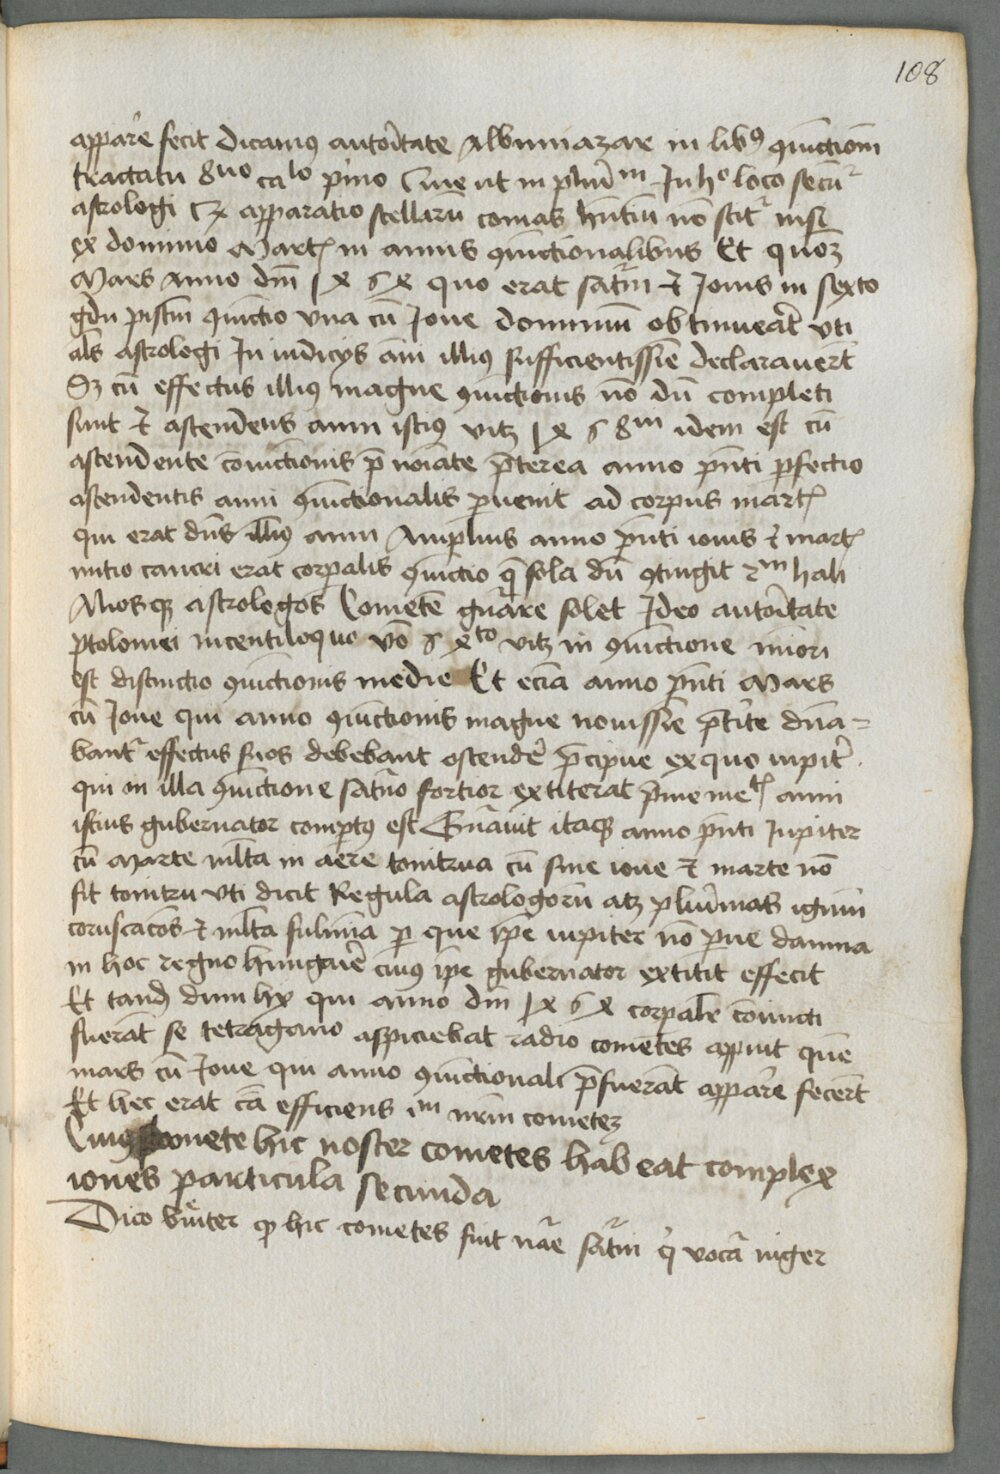 108
appare fecit dicamus autoritate Albumazare in libo coniunctionum
tractatu 8uo calo primo ut in plurimum In ho loco secun
astrologi apparatio stellarum comas hntium non scitr nisi
ex dominio Martis in annis coniunctionalibus Et quoniam
Mars Anno dm 1 4 6 4 quo erat saturni et Jouis in sexto
gdu pistium coniunctio vna cum Joue dominium obtinuerat vti
als astrologi In iudicys anni illius sufficientissime declarauerunt
Sz cum effectus illius magne coniunctionis non dum completi
sunt et astendens anni istius vitz 1 4 6 8m idem est cum
astendente coniunctionis prenominate preterea anno presenti perfectio
astendentis anni coniunctionalis peruenit ad corpus martis
qui erat dns illius anni Amplius anno presenti iouis et martis
initio cancri erat corporalis coniunctio que sola dum contingit 2m hali
Aliosque astrologos Cometem generare solet Ideo autoritate
ptolomei incentiloquo vo 6 4to vitz in coniunctione minori
est distinctio coniunctionis medie Et eciam anno presenti Mars
cum Joue qui anno coniunctionis magne nouissime preterite domina=
bantr effectus suos debebant ostendere precipue exquo iupiter
qui in illa coniunctione saturno fortior extiterat anni
istius gubernator compertus est Generauit itaque anno presenti Iupiter
cum Marte multa in aere tonitrua cum sine ioue et marte non
fit tonitru vti dicit Regula astrologorum atz plurimas ignium
coruscacones et multa fulmina per que ipse iupiter non parue damna
in hoc regno hungarie cuius ipse gubernator extitit effecit
Et tandem dum hy qui anno dm 1 4 6 4 corporaliter coniuncti
fuerant se tetragano aspiciebat radio cometes apparuit quem
mars cum Joue qui anno coniunctionali prefuerant apparere fecerunt
Et hec erat causa efficiens im nostrum cometez
Cuius comete hic noster cometes habeat complex
iones particula secunda
Dico breuiter quod hic cometes fuit nature saturni qui vocatur niger